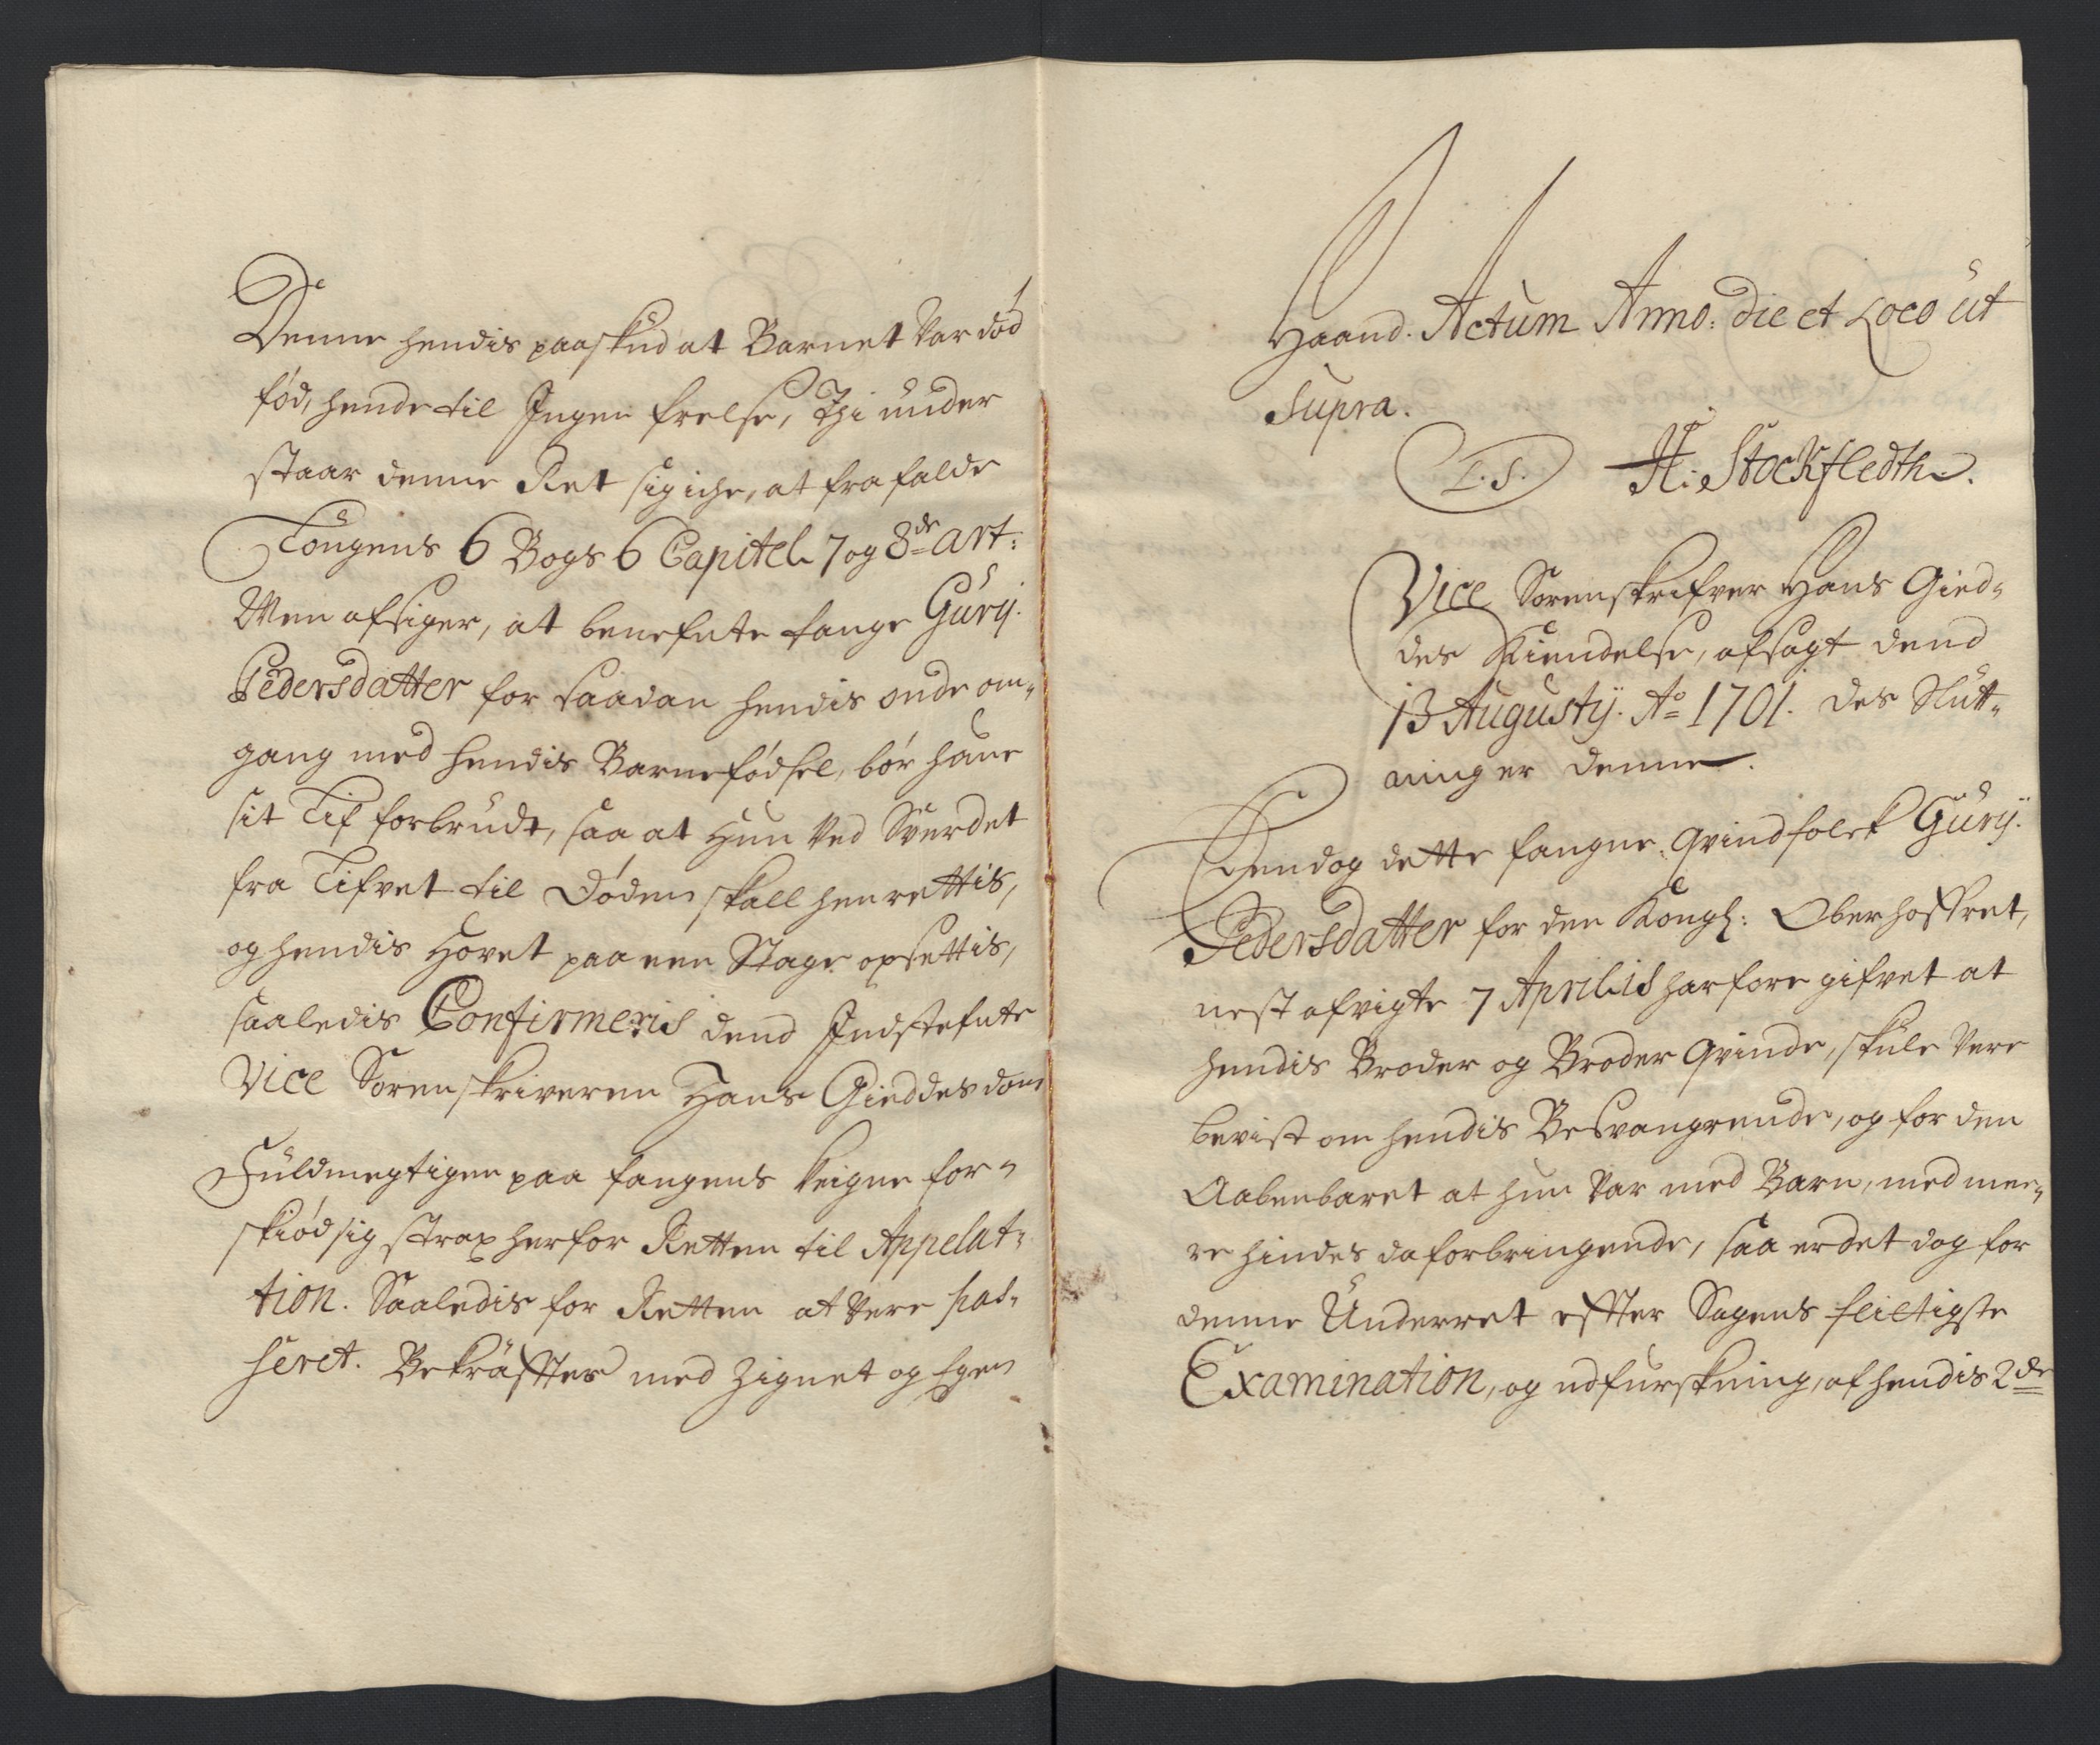 Denne hendis paaskud at Barnet var død
fød, hende til Ingen frelse, Thi under
staar denne Ret sig iche, at frafalde
Lougens 6 Bogs 6 Capitel 7 og 8de art:
Men afsiger, at benefnte fange Gurij
Pedersdatter for saadan hendis onde om-
gang med hendis Barnefødsel, bør have
sit Lif forbrudt, saa at Hun ved Sverdet
fra Lifvet til Døden skall henrettis,
og hendis Hovet paa een Stage opsettis,
saaledis Confirmeris dend Indstefnte
Vice Sorenskriveren Hans Gieddes dom
Fuldmegtigen paa fangens veigne for-
skiød sig strax herfor Retten til Appelat-
tion. Saaledis for Retten at vere pas-
seret. Bekräfftes med Zignet og Egen
Haand. Actum Anno: die et Loco ut
Supra.
L.S. H: Stockfledth.
Vice Sorenskrifver Hans Gied-
des Kiendelse, afsagt dend
13 Augustij. Ao 1701. des Slutt-
ning er denne.
Endog dette fangne Qvindfolck Gurij.
Pedersdatter for den Kongl: Oberhoffret,
nest afvigte 7 Aprilis har foregifvet at
hendis Broder og Broder Qvinde, skule vere
bevist om hendis Besvangrende, og for dem
Aabenbaret at hun var med Barn, med mee-
re hindes da forbringende, saa er det dog for
denne Underret effter Sagens flictigste
Examination, og udfurskning, af hendis 2de